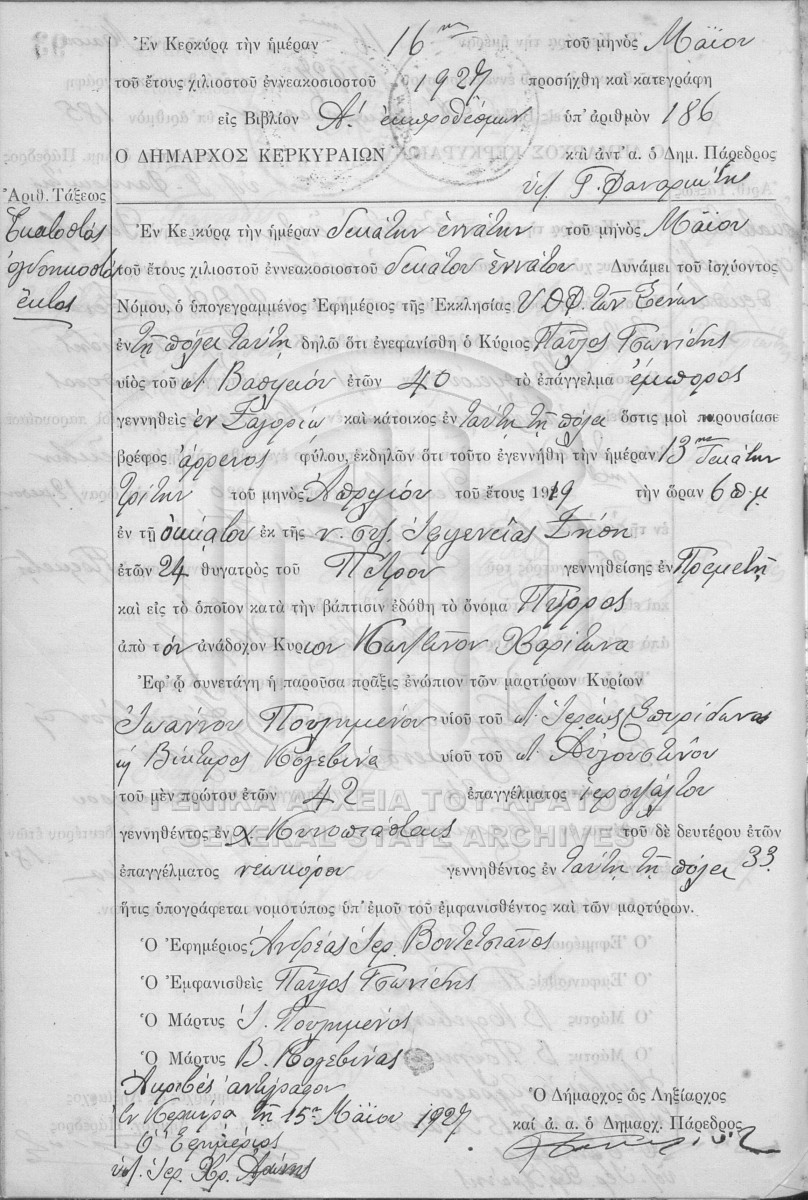 Ἐν Κερκύρᾳ τὴν ἡμέραν 16ην τοῦ μηνὸς Μαΐου
τοῦ ἔτους χιλιοστοῦ ἐννεακοσιοστοῦ 1927 προσήχθη καὶ κατεγράφη
εἰς Βιβλίον Α΄. ἐκπροθέσμων ὑπ' ἀριθμὸν 186
Ο ΔΗΜΑΡΧΟΣ ΚΕΡΚΥΡΑΙΩΝ καὶ ἀντ' α. ὁ Δημ. Πάρεδρος
Ἀριθ. Τάξεως
Ἑκατοστὸς
ὀγδοηκοστὸς
ἕκτος
Ἐν Κερκύρᾳ τὴν ἡμέραν δεκάτην ἐννάτην τοῦ μηνὸς Μαΐου
τοῦ ἔτους χιλιοστοῦ ἐννεακοσιοστοῦ δεκάτου ἐννάτου Δυνάμει τοῦ ἰσχύοντος
Νόμου, ὁ ὑπογεγραμμένος Ἐφημέριος τῆς Ἐκκλησίας Υ.Θ.Φ. τῶν Ξένων
ἐν τῇ πόλει ταύτῃ δηλῶ ὅτι ἐνεφανίσθη ὁ Κύριος Παῦλος Τσωνίδης
υἱὸς τοῦ Βασιλείου ἐτῶν 40 τὸ ἐπάγγελμα ἔμπορος
γεννηθεὶς ἐν Ζαγορίῳ καὶ κάτοικος ἐν ταύτῃ τῇ πόλει ὅστις μοὶ παρουσίασε
βρέφος ἄρρενος φύλου, ἐκδηλῶν ὅτι τοῦτο ἐγεννήθη τὴν ἡμέραν 13ην δεκάτην
τρίτην τοῦ μηνὸς Ἀπριλίου τοῦ ἔτους 1919 τὴν ὥραν 6 π.μ
ἐν τῇ οἰκίᾳ του ἐκ τῆς ν. συζ. Ἰφιγενείας Ζήση
ἐτῶν 24 θυγατρὸς τοῦ Πέτρου γεννηθείσης ἐν Πρεμετῇ
καὶ εἰς τὸ ὁποῖον κατὰ τὴν βάπτισιν ἐδόθη τὸ ὄνομα Πύρρος
ἀπὸ τὸν ἀνάδοχον Κυριον Κωνστ/νον Χαρίτωνα
Ἐφ' ᾧ συνετάγη ἡ παροῦσα πρᾶξις ἐνώπιον τῶν μαρτύρων Κυρίων
Ἰωάννου Πουλημένου υἱοῦ τοῦ Ἱερέως Σπυρίδωνος
ϗ Βίκτωρος Κολεβίνα υἱοῦ τοῦ Αὐγουστίνου
τοῦ μὲν πρώτου ἐτῶν 42 ἐπαγγέλματος ἱεροψάλτου
γεννηθέντος ἐν χ. Κυνοπιάσταις τοῦ δὲ δευτέρου ἐτῶν 33
ἐπαγγέλματος νεωκόρου γεννηθέντος ἐν ταύτῃ τῇ πόλει
ἥτις ὑπογράφεται νομοτύπως ὑπ' ἐμοῦ τοῦ ἐμφανισθέντος καὶ τῶν μαρτύρων.
Ὁ Ἐφημέριος Ἀνδρέας Ἱερ.
Ὁ Ἐμφανισθεὶς Παῦλος Τσωνίδης
Ὁ Μάρτυς Ἰ. Πουλημένος
Ὁ Μάρτυς Β. Κολεβίνας
Ἀκριβὲς ἀντίγραφον
Ἐν Κερκύρᾳ τῇ 15ῃ Μαΐου 1927
Ὁ Ἐφημέριος
Ἱερ. Χρ.
Ὁ Δήμαρχος ὡς Ληξίαρχος
καὶ ἀ. α. ὁ Δημαρχ. Πάρεδρος
ΓΕΝΙΚΑ ΑΡΧΕΙΑ ΤΟΥ ΚΡΑΤΟΥΣ
GENERAL STATE ARCHIVES